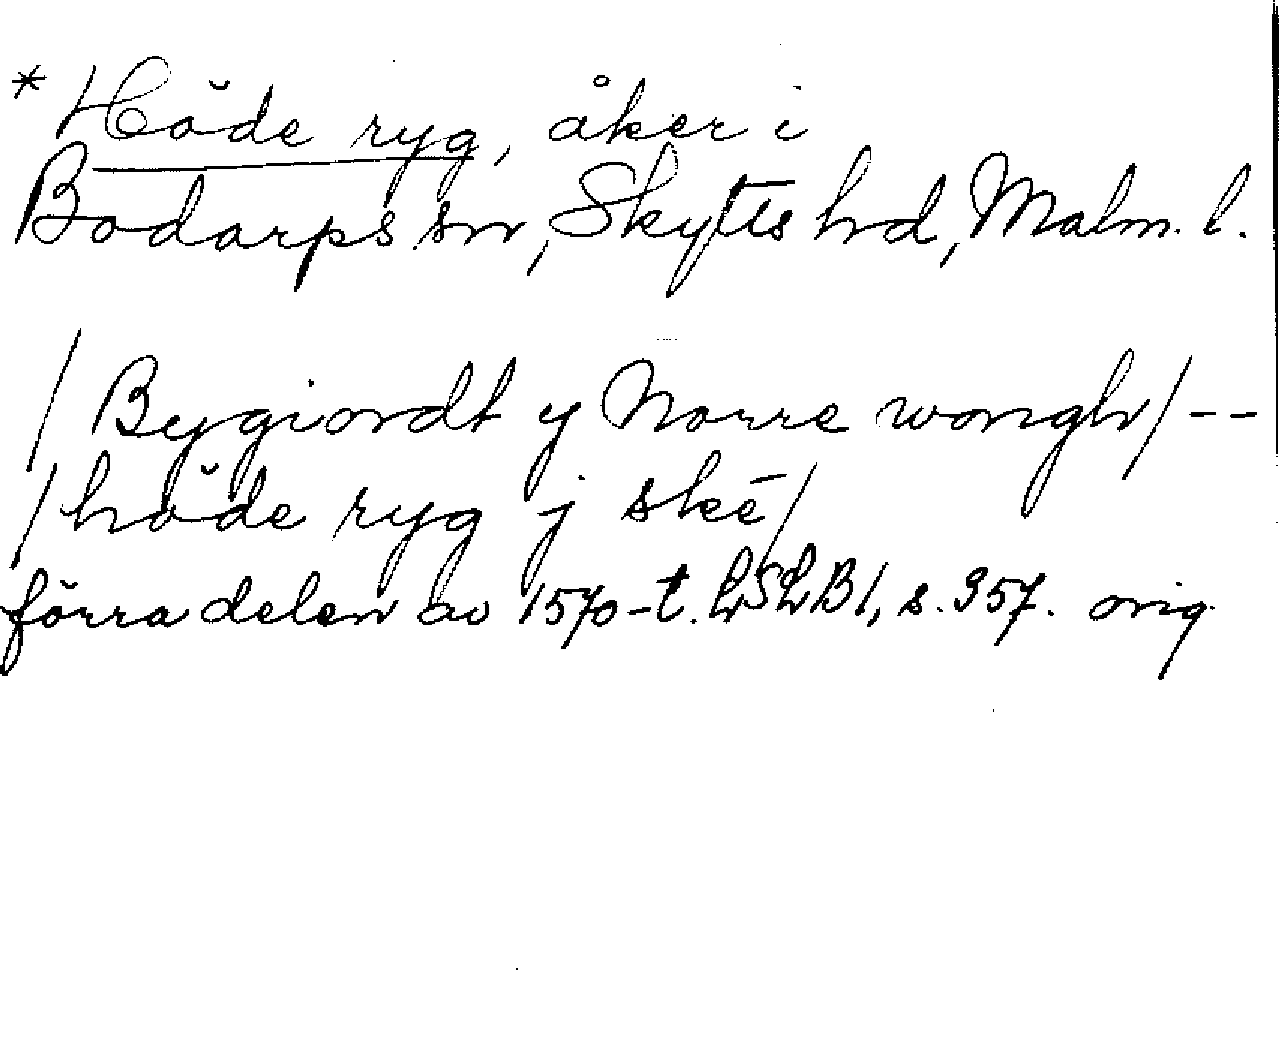 * Hŏde ryg, åker i
Bodarps sn, Skytts hd, Malm. l.
/ Bygiordt y Norre wongh/ --
/ hŏde ryg j ske/
förra delen av 1570-t. LSLB1, s. 357. orig.